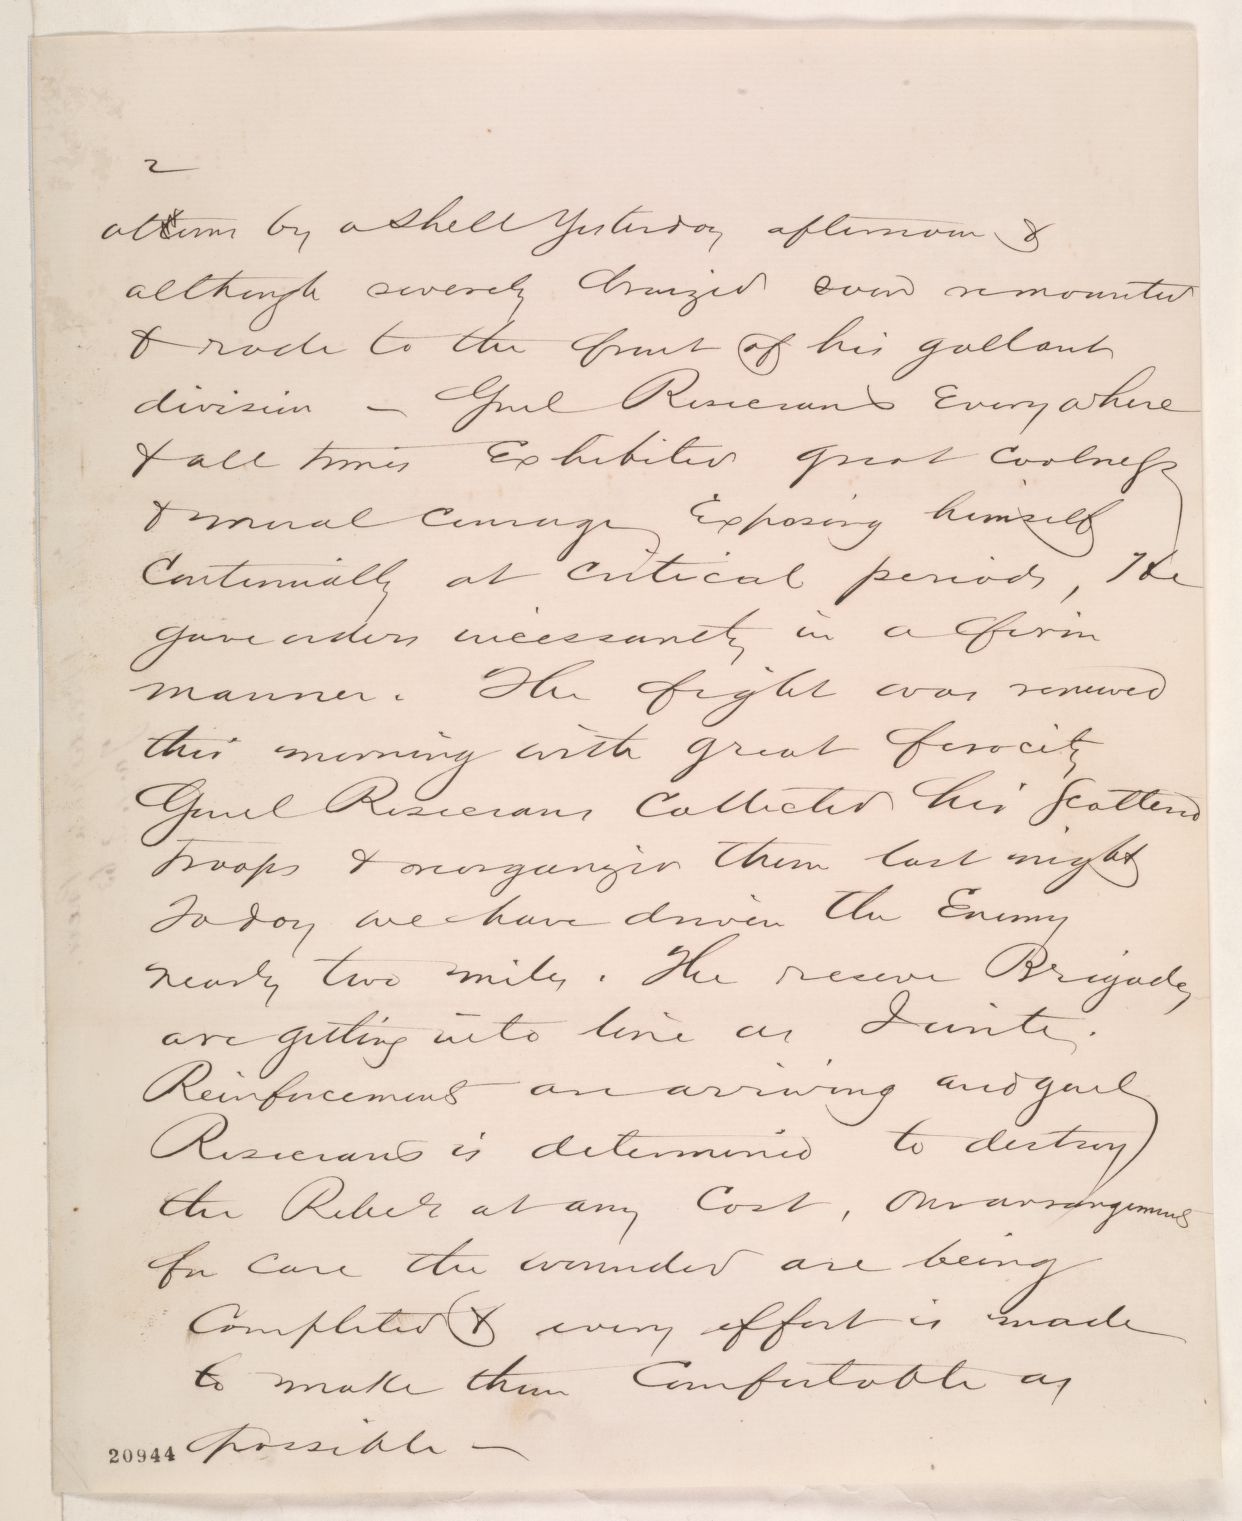 2
by a shell Yesterday afternoon &
although severely bruized soon remounted
& rode to the front of his gallant
division — Genl Rosecrans Everywhere
& all times Exhibited great Coolness
& moral Courage Exposing himself
Continually at critical periods, He
gave orders incessantly in a firm
manner. The fight was renewed
this morning with great ferocity
Genl Rosecrans Collected his Scattered
troops & reorganized them last night
Today we have driven the Enemy
nearly two miles. The reserve Brigades
are getting into line as I write.
Reinforcements are arriving and genl
Rosecrans is determined to destroy
the Rebels at any Cost, Our arrangements
for care the wounded are being
Completed & every effort is made
to make them Comfortable as
possible —
20944